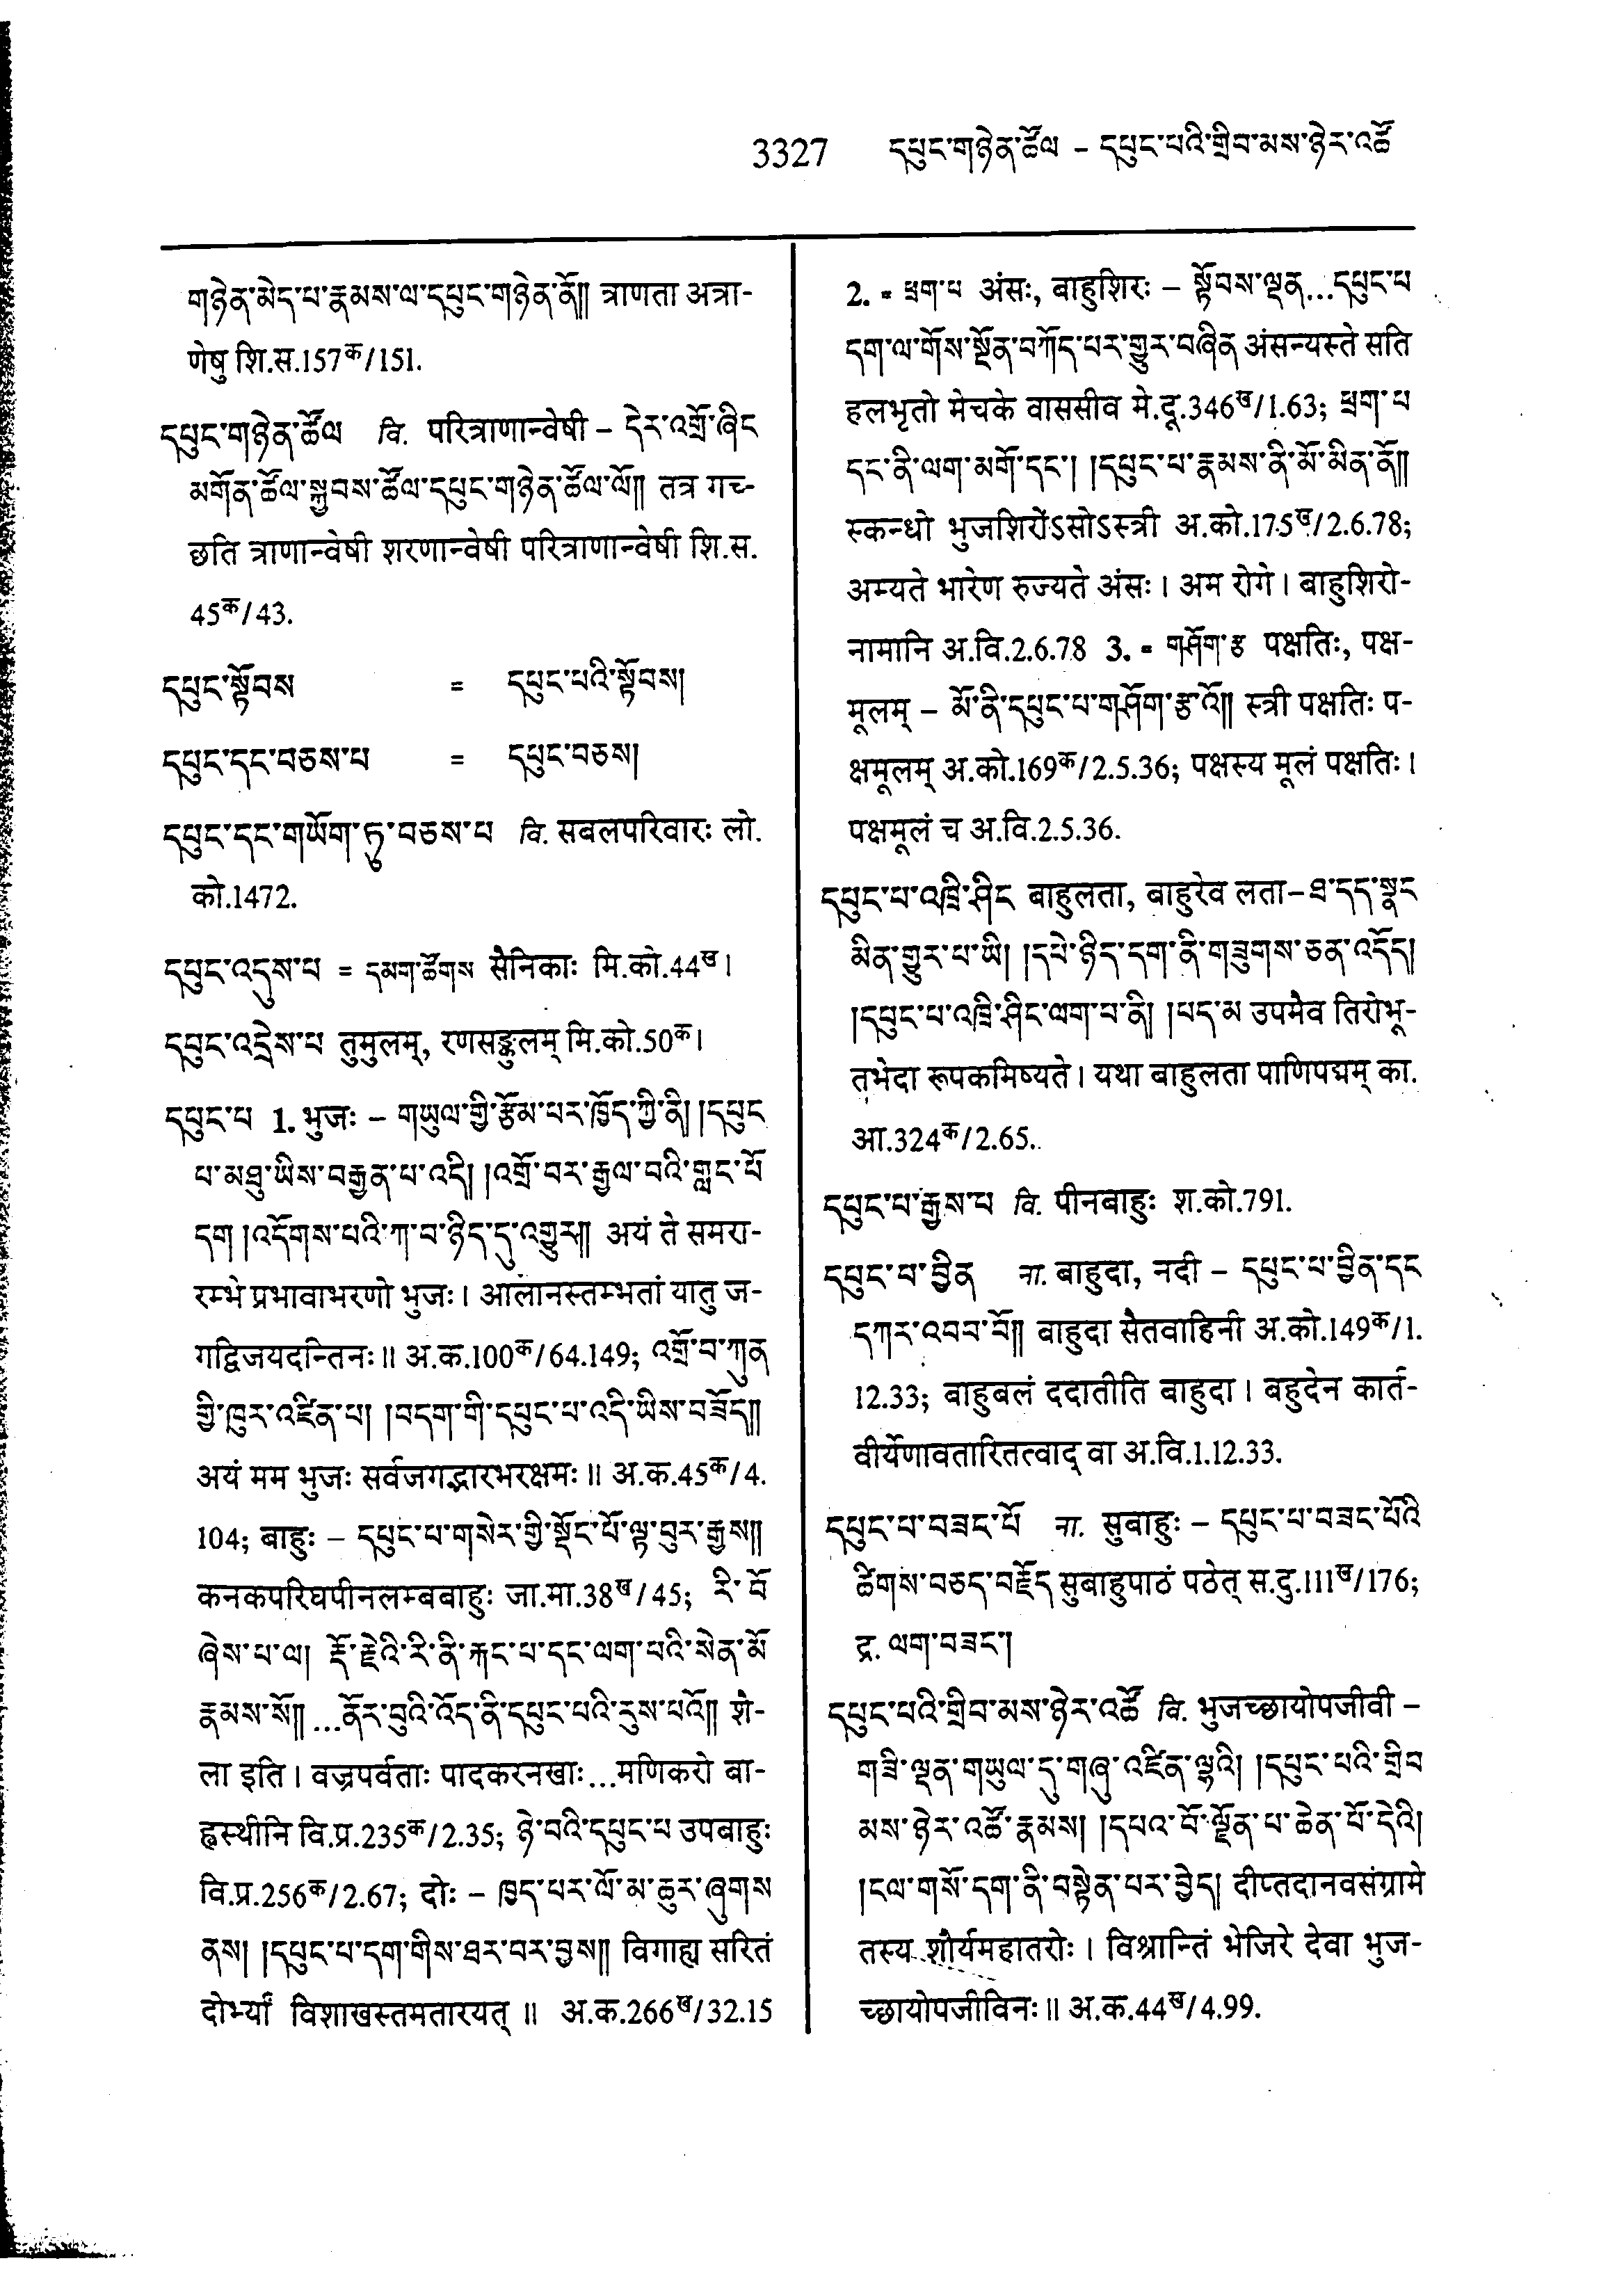 3327 དཔུང་གཉེན་ཚོལ – དཔུང་པའི་གྲིབ་མས་ཉེར་འཚོ
གཉེན་མེད་པ་རྣམས་ལ་དཔུང་གཉེན་ནོ༎ त्राणता अत्रा-
णेषु शि.स.157क/151.
དཔུང་གཉེན་ཚོལ वि. परित्राणान्वेषी – དེར་འགྲོ་ཞིང
མགོན་ཚོལ་སྐྱབས་ཚོལ་དཔུང་གཉེན་ཚོལ་ལོ༎ तत्र गच्-
छति त्राणान्वेषी शरणान्वेषी परित्राणान्वेषी शि.स.
45क/43.
དཔུང་སྟོབས = དཔུང་པའི་སྟོབས།
དཔུང་དང་བཅས་པ = དཔུང་བཅས།
དཔུང་དང་གཡོག་ཏུ་བཅས་པ वि. सबलपरिवारः लो.
को.1472.
དཔུང་འདུས་པ = དམག་ཚོགས सैनिकाः मि.को.44ख।
དཔུང་འདྲེས་པ तुमुलम्, रणसङ्कुलम् मि.को.50क।
དཔུང་པ 1. भुजः – གཡུལ་གྱི་རྩོམ་པར་ཁྱོད་ཀྱི་ནི། །དཔུང
པ་མཐུ་ཡིས་བརྒྱན་པ་འདི། །འགྲོ་བར་རྒྱལ་བའི་གླང་པོ
དག །འདོགས་པའི་ཀ་བ་ཉིད་དུ་འགྱུར༎ अयं ते समरा-
रम्भे प्रभावाभरणो भुजः। आलानस्तम्भतां यातु ज-
गद्विजयदन्तिनः॥ अ.क.100क/64.149; འགྲོ་བ་ཀུན
གྱི་ཁུར་འཛིན་པ། །བདག་གི་དཔུང་པ་འདི་ཡིས་བཟོད༎
अयं मम भुजः सर्वजगद्भारभरक्षमः॥ अ.क.45क/4.
104; बाहुः – དཔུང་པ་གསེར་གྱི་སྡོང་པོ་ལྟ་བུར་རྒྱས༎
कनकपरिघपीनलम्बबाहुः जा.मा.38ख/45; རི་བོ
ཞེས་པ་ལ། རྡོ་རྗེའི་རི་ནི་རྐང་པ་དང་ལག་པའི་སེན་མོ
རྣམས་སོ༎ ...ནོར་བུའི་འོད་ནི་དཔུང་པའི་རུས་པའོ༎ शै-
ला इति। वज्रपर्वताः पादकरनखाः...मणिकरो बा-
ह्वस्थीनि वि.प्र.235क/2.35; ཉེ་བའི་དཔུང་པ उपबाहुः
वि.प्र.256क/2.67; दोः – ཁྱད་པར་ལོ་མ་ཆུར་ཞུགས
ནས། །དཔུང་པ་དག་གིས་ཐར་བར་བྱས༎ विगाह्य सरितं
दोर्भ्यां विशाखस्तमतारयत्॥ अ.क.266ख/32.15
2. = ཕྲག་པ अंसः, बाहुशिरः – སྟོབས་ལྡན...དཔུང་པ
དག་ལ་གོས་སྔོན་བཀོད་པར་གྱུར་བཞིན अंसन्यस्ते सति
हलभृतो मेचके वाससीव मे.दू.346ख/1.63; ཕྲག་པ
དང་ནི་ལག་མགོ་དང་། །དཔུང་པ་རྣམས་ནི་མོ་མིན་ནོ༎
स्कन्धो भुजशिरोंऽसोऽस्त्री अ.को.175ख/2.6.78;
अम्यते भारेण रुज्यते अंसः। अम रोगे। बाहुशिरो-
नामानि अ.वि.2.6.78 3. = གཤོག་རྩ पक्षतिः, पक्ष-
मूलम् – མོ་ནི་དཔུང་པ་གཤོག་རྩ་འོ༎ स्त्री पक्षतिः प-
क्षमूलम् अ.को.169क/2.5.36; पक्षस्य मूलं पक्षतिः।
पक्षमूलं च अ.वि.2.5.36.
དཔུང་པ་འཁྲི་ཤིང बाहुलता, बाहुरेव लता – ཐ་དད་སྣང
མིན་གྱུར་པ་ཡི། །དཔེ་ཉིད་དག་ནི་གཟུགས་ཅན་འདོད།
།དཔུང་པ་འཁྲི་ཤིང་ལག་པ་ནི། །པད་མ उपमैव तिरोभू-
तभेदा रूपकमिष्यते। यथा बाहुलता पाणिपद्मम् का.
आ.324क/2.65.
དཔུང་པ་རྒྱས་པ वि. पीनबाहुः श.को.791.
དཔུང་པ་བྱིན ना. बाहुदा, नदी – དཔུང་པ་བྱིན་དང
དཀར་འབབ་བོ༎ बाहुदा सैतवाहिनी अ.को.149क/1.
12.33; बाहुबलं ददातीति बाहुदा। बहुदेन कार्त-
वीर्येणावतारितत्वाद् वा अ.वि.1.12.33.
དཔུང་པ་བཟང་པོ ना. सुबाहुः – དཔུང་པ་བཟང་པོའི
ཚིགས་བཅད་བརྗོད सुबाहुपाठं पठेत् स.दु.111ख/176;
द्र. ལག་བཟང་།
དཔུང་པའི་གྲིབ་མས་ཉེར་འཚོ वि. भुजच्छायोपजीवी –
གཟི་ལྡན་གཡུལ་དུ་གཞུ་འཛིན་ལྷའི། །དཔུང་པའི་གྲིབ
མས་ཉེར་འཚོ་རྣམས། །དཔའ་བོ་ལྗོན་པ་ཆེན་པོ་དེའི།
།ངལ་གསོ་དག་ནི་བསྟེན་པར་བྱེད། दीप्तदानवसंग्रामे
तस्य शौर्यमहातरोः। विश्रान्तिं भेजिरे देवा भुज-
च्छायोपजीविनः॥ अ.क.44ख/4.99.